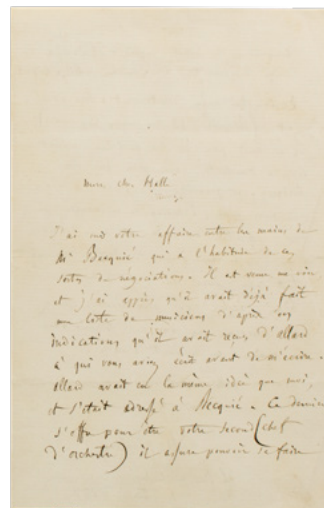 Mon cher Hallé
J'ai mis votre affaire entre les mains de
Mr Becquié qui a l'habitude de ces
sortes de négociations. Il est venu me voir
et j'ai appris qu'il avait déjà fait
une liste de musiciens d'après les
indications qu'il avait reçu d'allard
à qui vous aviez écrit avant de m'écrire.
allard avait eu la même idée que moi,
et s'était adressé à Becquié. Ce dernier
s'offre pour être votre second (chef
d'orchestre) il assure pouvoir se faire